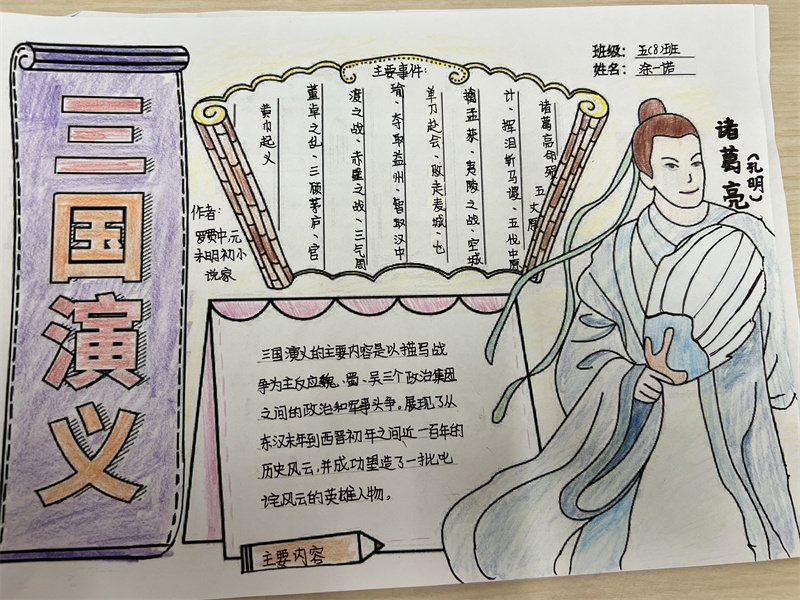 三国演义
班级：五(8)班
姓名：涂一诺
主要事件：
黄巾起义
董卓之乱、三顾茅庐、官
渡之战、赤壁之战、三气周
瑜、夺取益州、智取汉中
单刀赴会、败走麦城、七
擒孟获、夷陵之战、空城
计、挥泪斩马谡、五伐中原
诸葛亮命殒
五丈原
诸葛亮
(孔明)
作者：
罗贯中，元
末明初小
说家
三国演义的主要内容是以描写战
争为主反应魏、蜀、吴三个政治集团
之间的政治和军事斗争。展现了从
东汉末年到西晋初年之间近一百年的
历史风云，并成功塑造了一批叱
诧风云的英雄人物。
主要内容